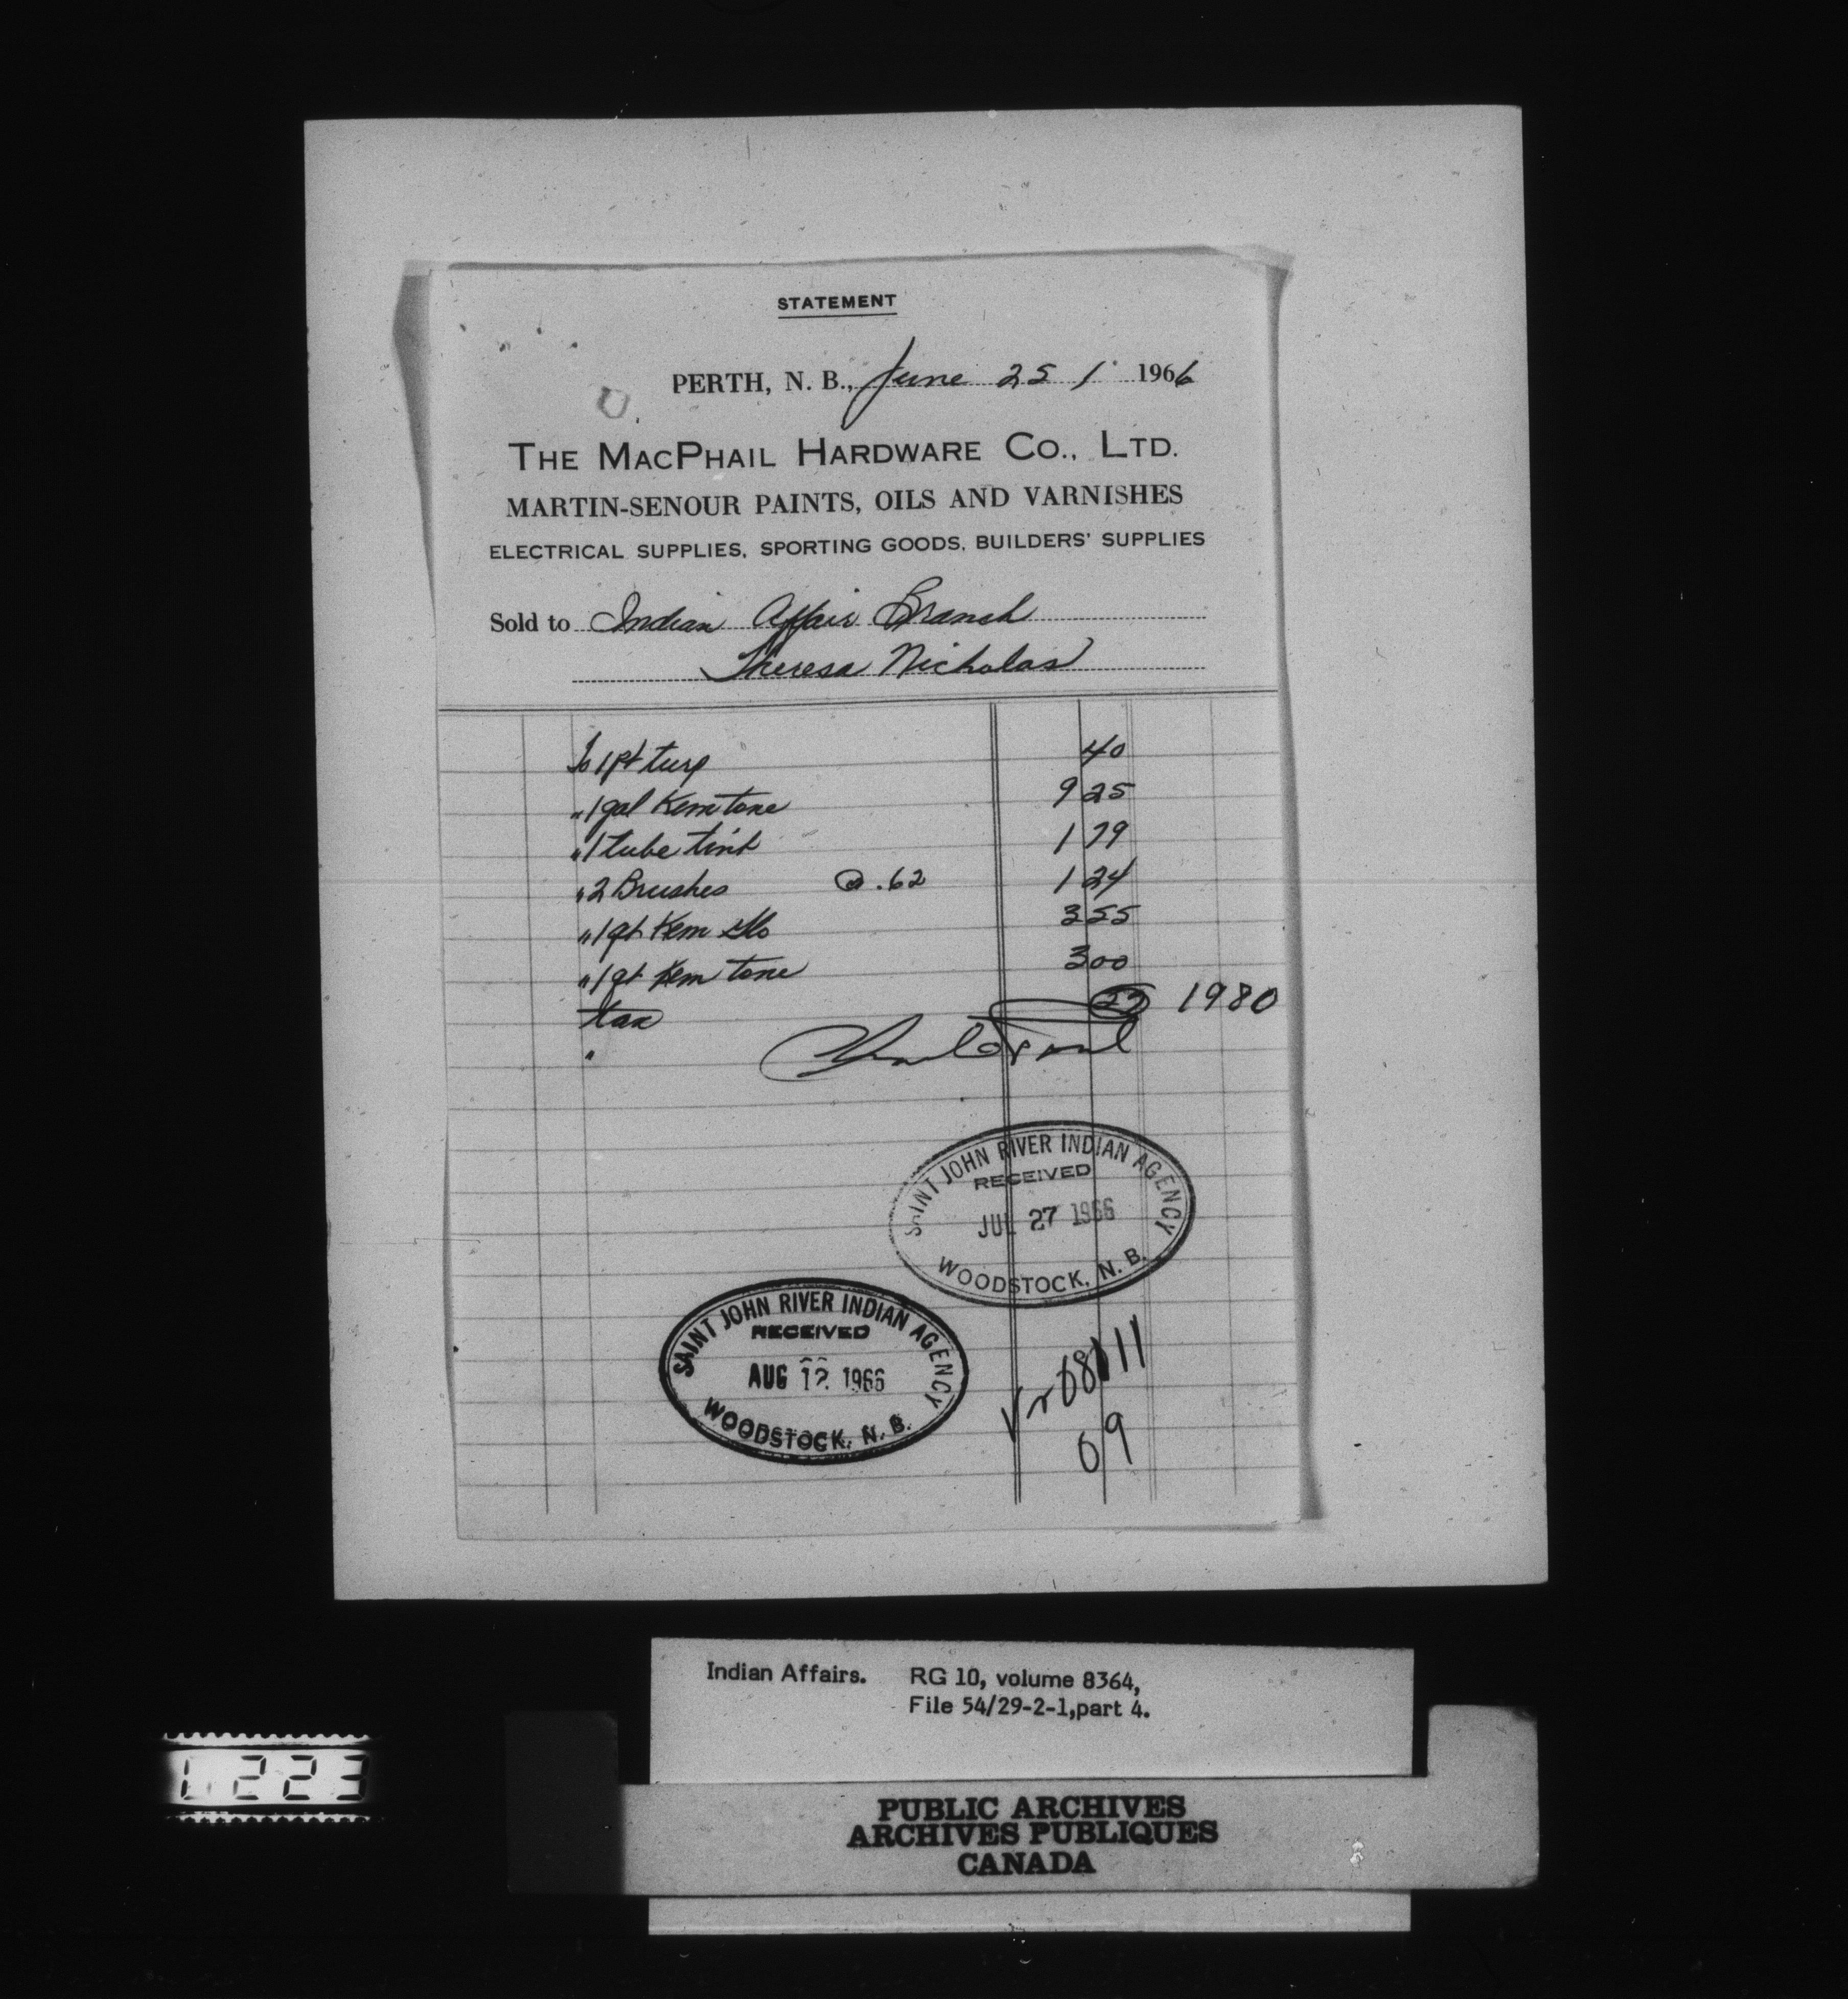 STATEMENT
PERTH, N. B., June 25 / 1966
THE MACPHAIL HARDWARE CO., LTD.
MARTIN-SENOUR PAINTS, OILS AND VARNISHES
ELECTRICAL SUPPLIES, SPORTING GOODS, BUILDERS' SUPPLIES
Sold to Indian Affair Branch
Theresa Nicholas
To 1 pt turp 40
" 1 gal Kem tone 9 25
" 1 tube tint 1 79
" 2 Brushes @ .62 1 24
" 1 qt Kem Glo 3 55
" 1 qt Kem tone 3 00
tax 57 19 80
"
SAINT JOHN RIVER INDIAN AGENCY
RECEIVED
JUL 27 1966
WOODSTOCK, N. B.
SAINT JOHN RIVER INDIAN AGENCY
RECEIVED
AUG 12 1966
WOODSTOCK, N. B.
09
Indian Affairs. RG 10, volume 8364,
File 54/29-2-1, part 4.
223
PUBLIC ARCHIVES
ARCHIVES PUBLIQUES
CANADA